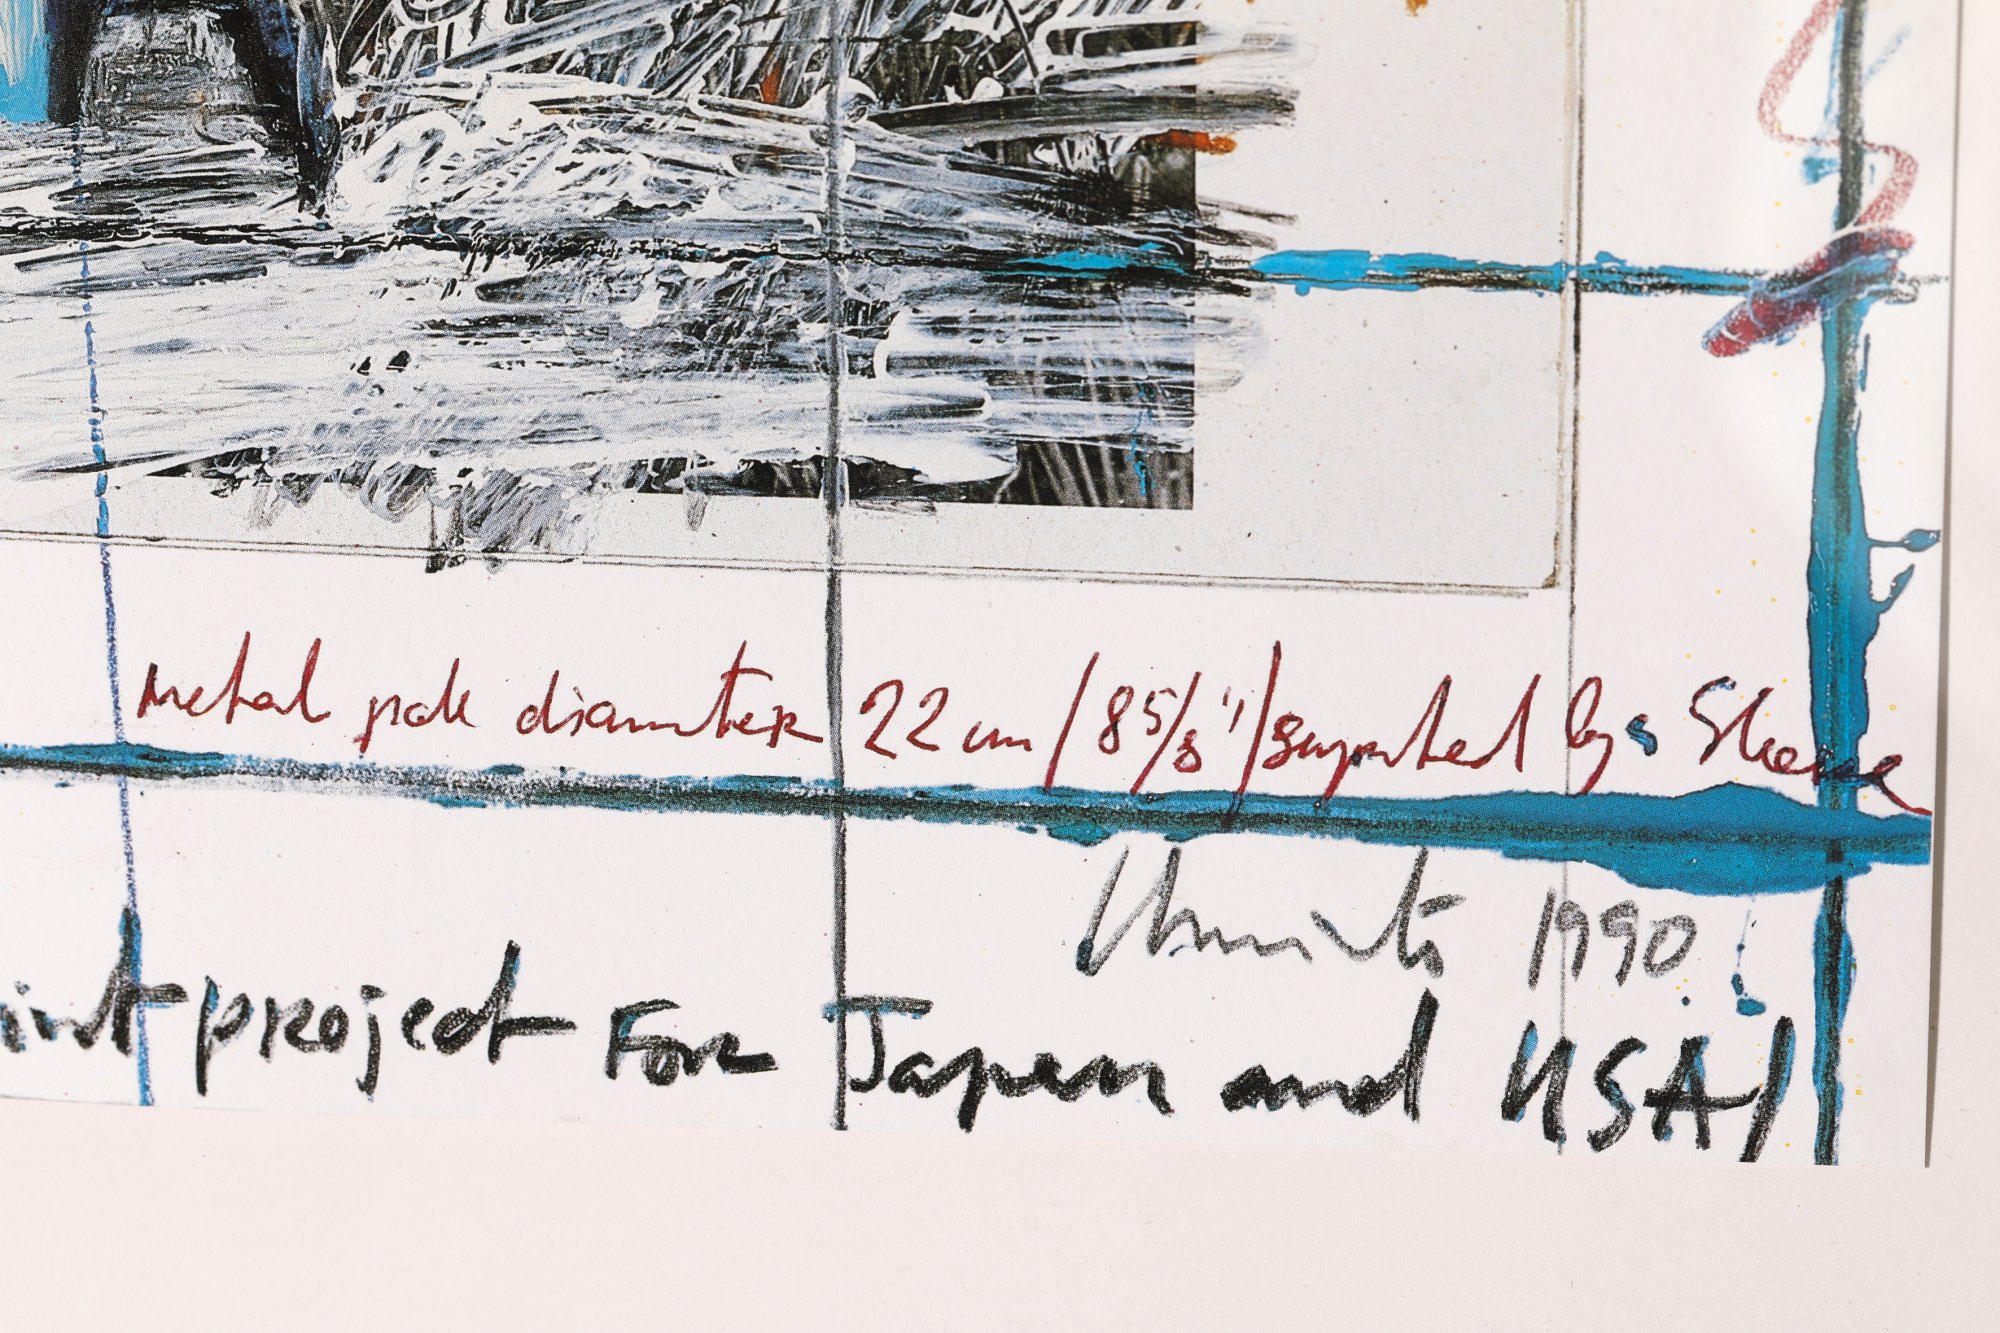 Metal pole diameter 22 cm / 8 5/8" / supported by a Sleeve
Christo 1990
joint project For Japan and USA/